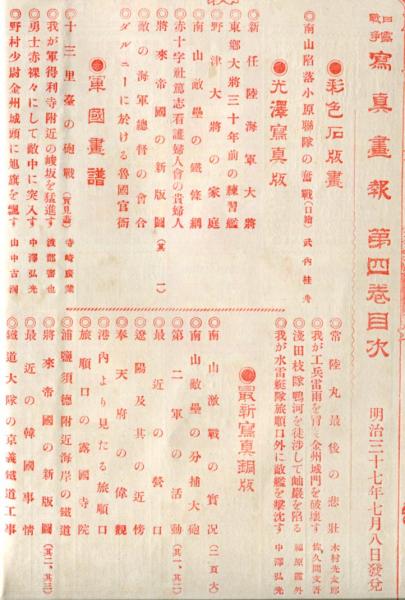 日露戰爭寫眞畫報 第四卷目次 明治三十七年七月八日發兌
●彩色石版畫
◎南山陷落小原聯隊の奮戰(口繪) 武内桂舟
●光澤寫眞版
◎新任陸海軍大將
◎東鄕大將三十年前の練習艦
◎野津大將の家庭
◎南山敵壘の鐵條網
◎赤十字社篤志看護婦人會の貴婦人
◎將來帝國の新版圖(其一)
◎敵の海軍總督の會合
◎ダルニーに於ける魯國官衙
●軍國畫譜
◎十三里臺の砲戰(實見畫) 寺崎廣業
◎我が軍得利寺附近の峻坂を猛進す 渡部審也
◎勇士赤裸々にして敵中に突入す 中澤弘光
◎野村少尉金州城頭に旭旗を飜す 山中古洞
◎常陸丸最後の悲壯 木村光太郎
◎我が工兵雷雨を冒して金州城門を破壞す 佐久間文吾
◎淺田枝隊鴨河を徒涉して岫巖を陷る
◎我が水雷艇隊旅順口外に敵艦を擊沈す 中澤弘光
●最新寫眞銅版
◎南山激戰の實況(二頁大)
◎南山敵壘の分捕大砲
◎第二軍の活動(其一、其二)
◎最近の營口
◎遼陽及其の近傍
◎奉天府の偉觀
◎港內より見たる旅順口
◎旅順口の露國寺院
◎浦鹽須德附近海岸の鐵道
◎將來帝國の新版圖(其二、其三)
◎最近の韓國事情
◎鐵道大隊の京義鐵道工事